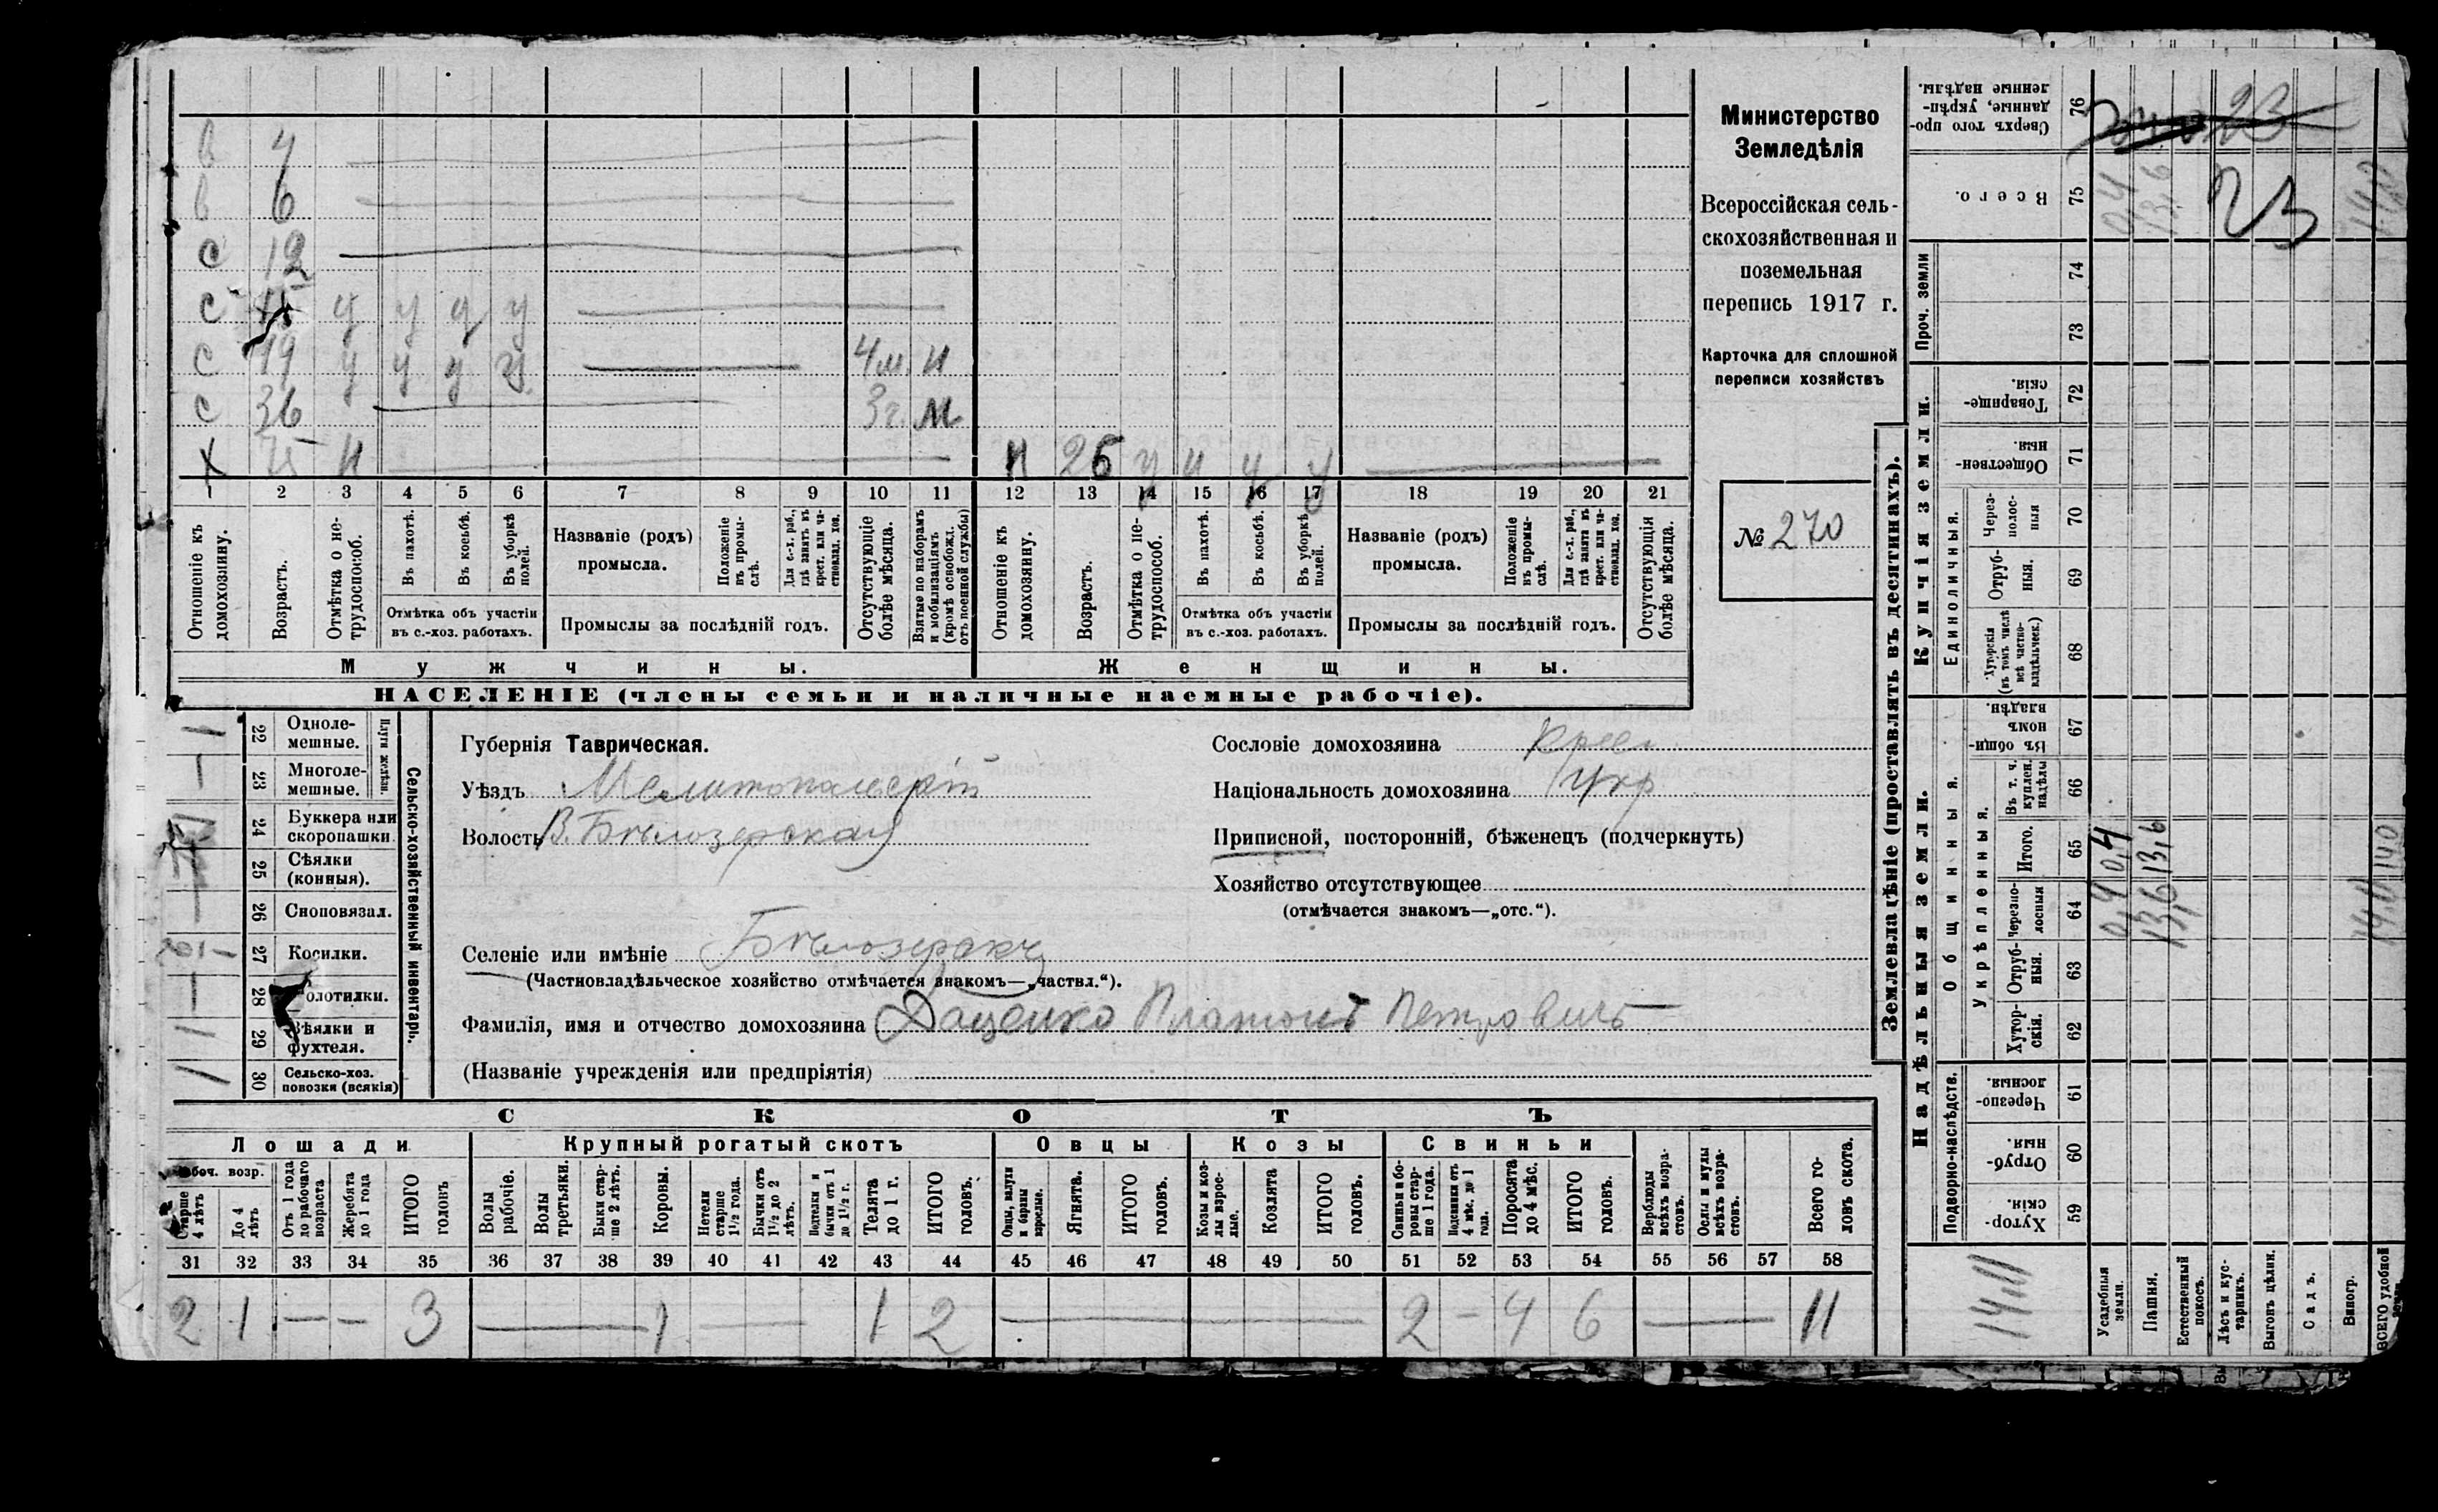 в 4
в 6
с 12
с у у у у
с 19 у у у у 4 м. н
с 36 3 г. м
х 75 н
н 26 у и у у
1 2 3 4 5 6 7 8 9 10 11 12 13 14 15 16 17 18 19 20 21
Отношеніе къ домохозяину.
Возрастъ.
Отмѣтка о не-
трудоспособ.
Въ пахотѣ.
Въ косьбѣ.
Въ уборкѣ полей.
Отмѣтка объ участіи
въ с.-хоз. работахъ.
Названіе (родъ)
промысла.
Положеніе
въ промы-
слѣ.
Для с.-х. раб.,
гдѣ занятъ въ
крест. или ча-
стновлад. хоз.
Промыслы за послѣдній годъ.
Отсутствующіе
болѣе мѣсяца.
Взятые по наборамъ
и мобилизаціямъ
(кромѣ освобожд.
отъ военной службы)
Отношеніе къ
домохозяину.
Возрастъ.
Отмѣтка о не-
трудоспособ.
Въ пахотѣ.
Въ косьбѣ.
Въ уборкѣ
полей.
Отмѣтка объ участіи
въ с.-хоз. работахъ.
Названіе (родъ)
промысла.
Положеніе
въ промы-
слѣ.
Для с.-х. раб.,
гдѣ занята въ
крест. или ча-
стновлад. хоз.
Промыслы за послѣдній годъ.
Отсутствующія
болѣе мѣсяца.
Мужчины.
Женщины.
НАСЕЛЕНІЕ (члены семьи и наличные наемные рабочіе).
Министерство
Земледѣлія
Всероссійская сель-
скохозяйственная и
поземельная
перепись 1917 г.
Карточка для сплошной
переписи хозяйствъ
№ 270
22 Одноле-
мешные.
23 Многоле-
мешные.
Плуги желѣзн.
24 Буккера или
скоропашки.
25 Сѣялки
(конныя).
26 Сноповязал.
27 Косилки.
28 Молотилки.
29 Вѣялки и
фухтеля.
30 Сельско-хоз.
повозки (всякія)
Сельско-хозяйственный инвентарь.
Губернія Таврическая.
Уѣздъ Мелитопольскій
Волость В. Бѣлозерская
Селеніе или имѣніе
(Частновладѣльческое хозяйство отмѣчается знакомъ—„частвл.“).
Фамилія, имя и отчество домохозяина Даценко Платонъ Петровичъ
(Названіе учрежденія или предпріятія)
Сословіе домохозяина Крест
Національность домохозяина Укр
Приписной, посторонній, бѣженецъ (подчеркнуть)
Хозяйство отсутствующее
(отмѣчается знакомъ—„отс.“).
СКОТЪ
Лошади
Крупный рогатый скотъ
Овцы
Козы
Свиньи
Рабоч. возр.
Старше
4 лѣтъ
До 4
лѣтъ
Отъ 1 года
до рабочаго
возраста
Жеребята
до 1 года
ИТОГО
головъ
Волы
рабочіе.
Волы
третьяки.
Быки стар-
ше 2 лѣтъ.
Коровы.
Нетели
старше
1½ года.
Бычки отъ
1½ до 2
лѣтъ.
Подтелки и
бычки отъ 1
до 1½ г.
Телята
до 1 г.
ИТОГО
головъ.
Овцы, валухи
и бараны
взрослые.
Ягнята.
ИТОГО
головъ.
Козы и коз-
лы взрос-
лые.
Козлята
ИТОГО
головъ.
Свиньи и бо-
ровы стар-
ше 1 года.
Подсвинки отъ
4 мѣс. до 1
года.
Поросята
до 4 мѣс.
ИТОГО
головъ.
Верблюды
всѣхъ возра-
стовъ.
Ослы и мулы
всѣхъ возра-
стовъ.
Всего го-
ловъ скота.
31 32 33 34 35 36 37 38 39 40 41 42 43 44 45 46 47 48 49 50 51 52 53 54 55 56 57 58
2 1 — — 3 — 1 — 1 2 — 2 — 4 6 — 11
Землевладѣніе (проставлять въ десятинахъ).
Купчія земли.
Надѣльныя земли.
Сверхъ того про-
данные, укрѣп-
ленные надѣлы.
76
23
Всего.
75
0,4 13,6 23
Проч. земли
74
73
Товарище-
скія.
72
Обществен-
ныя.
71
Единоличныя.
Через-
полос-
ныя
70
Отруб-
ныя.
69
Хуторскія
(въ томъ числѣ
всѣ частно-
владѣльческ.)
68
Общинныя.
Въ общи-
номъ
владѣн.
67
Укрѣпленныя.
Въ т. ч.
куплен.
надѣлы
66
Итого.
65
0,4 13,6 140
Черезпо-
лосныя
64
0,4 13,6
Отруб-
ныя.
63
Хутор-
скія.
62
Подворно-наслѣдств.
Черезпо-
лосныя.
61
Отруб-
ныя.
60
Хутор-
скія.
59
Усадебныя
земли.
Пашня.
Естественный
покосъ.
Лѣсъ и кус-
тарникъ.
Выгонъ цѣлин.
Садъ.
Виногр.
ВСЕГО удобной